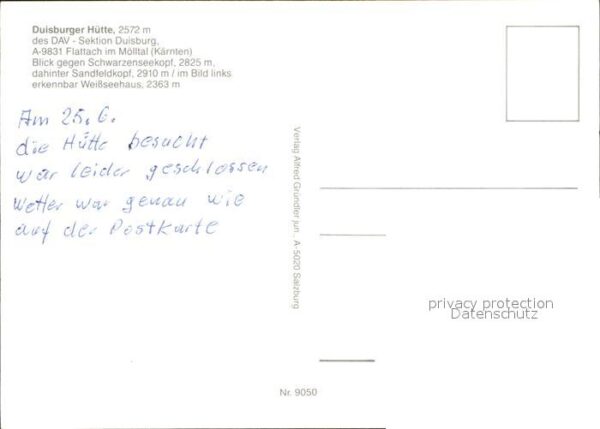 Duisburger Hütte, 2572 m
des DAV - Sektion Duisburg,
A-9831 Flattach im Mölltal (Kärnten)
Blick gegen Schwarzenseekopf, 2825 m,
dahinter Sandfeldkopf, 2910 m / im Bild links
erkennbar Weißseehaus, 2363 m
Am 25.6.
die Hütte besucht
war leider geschlossen
Wetter war genau wie
auf der Postkarte
Verlag Alfred Gründler jun., A-5020 Salzburg
privacy protection
Datenschutz
Nr. 9050